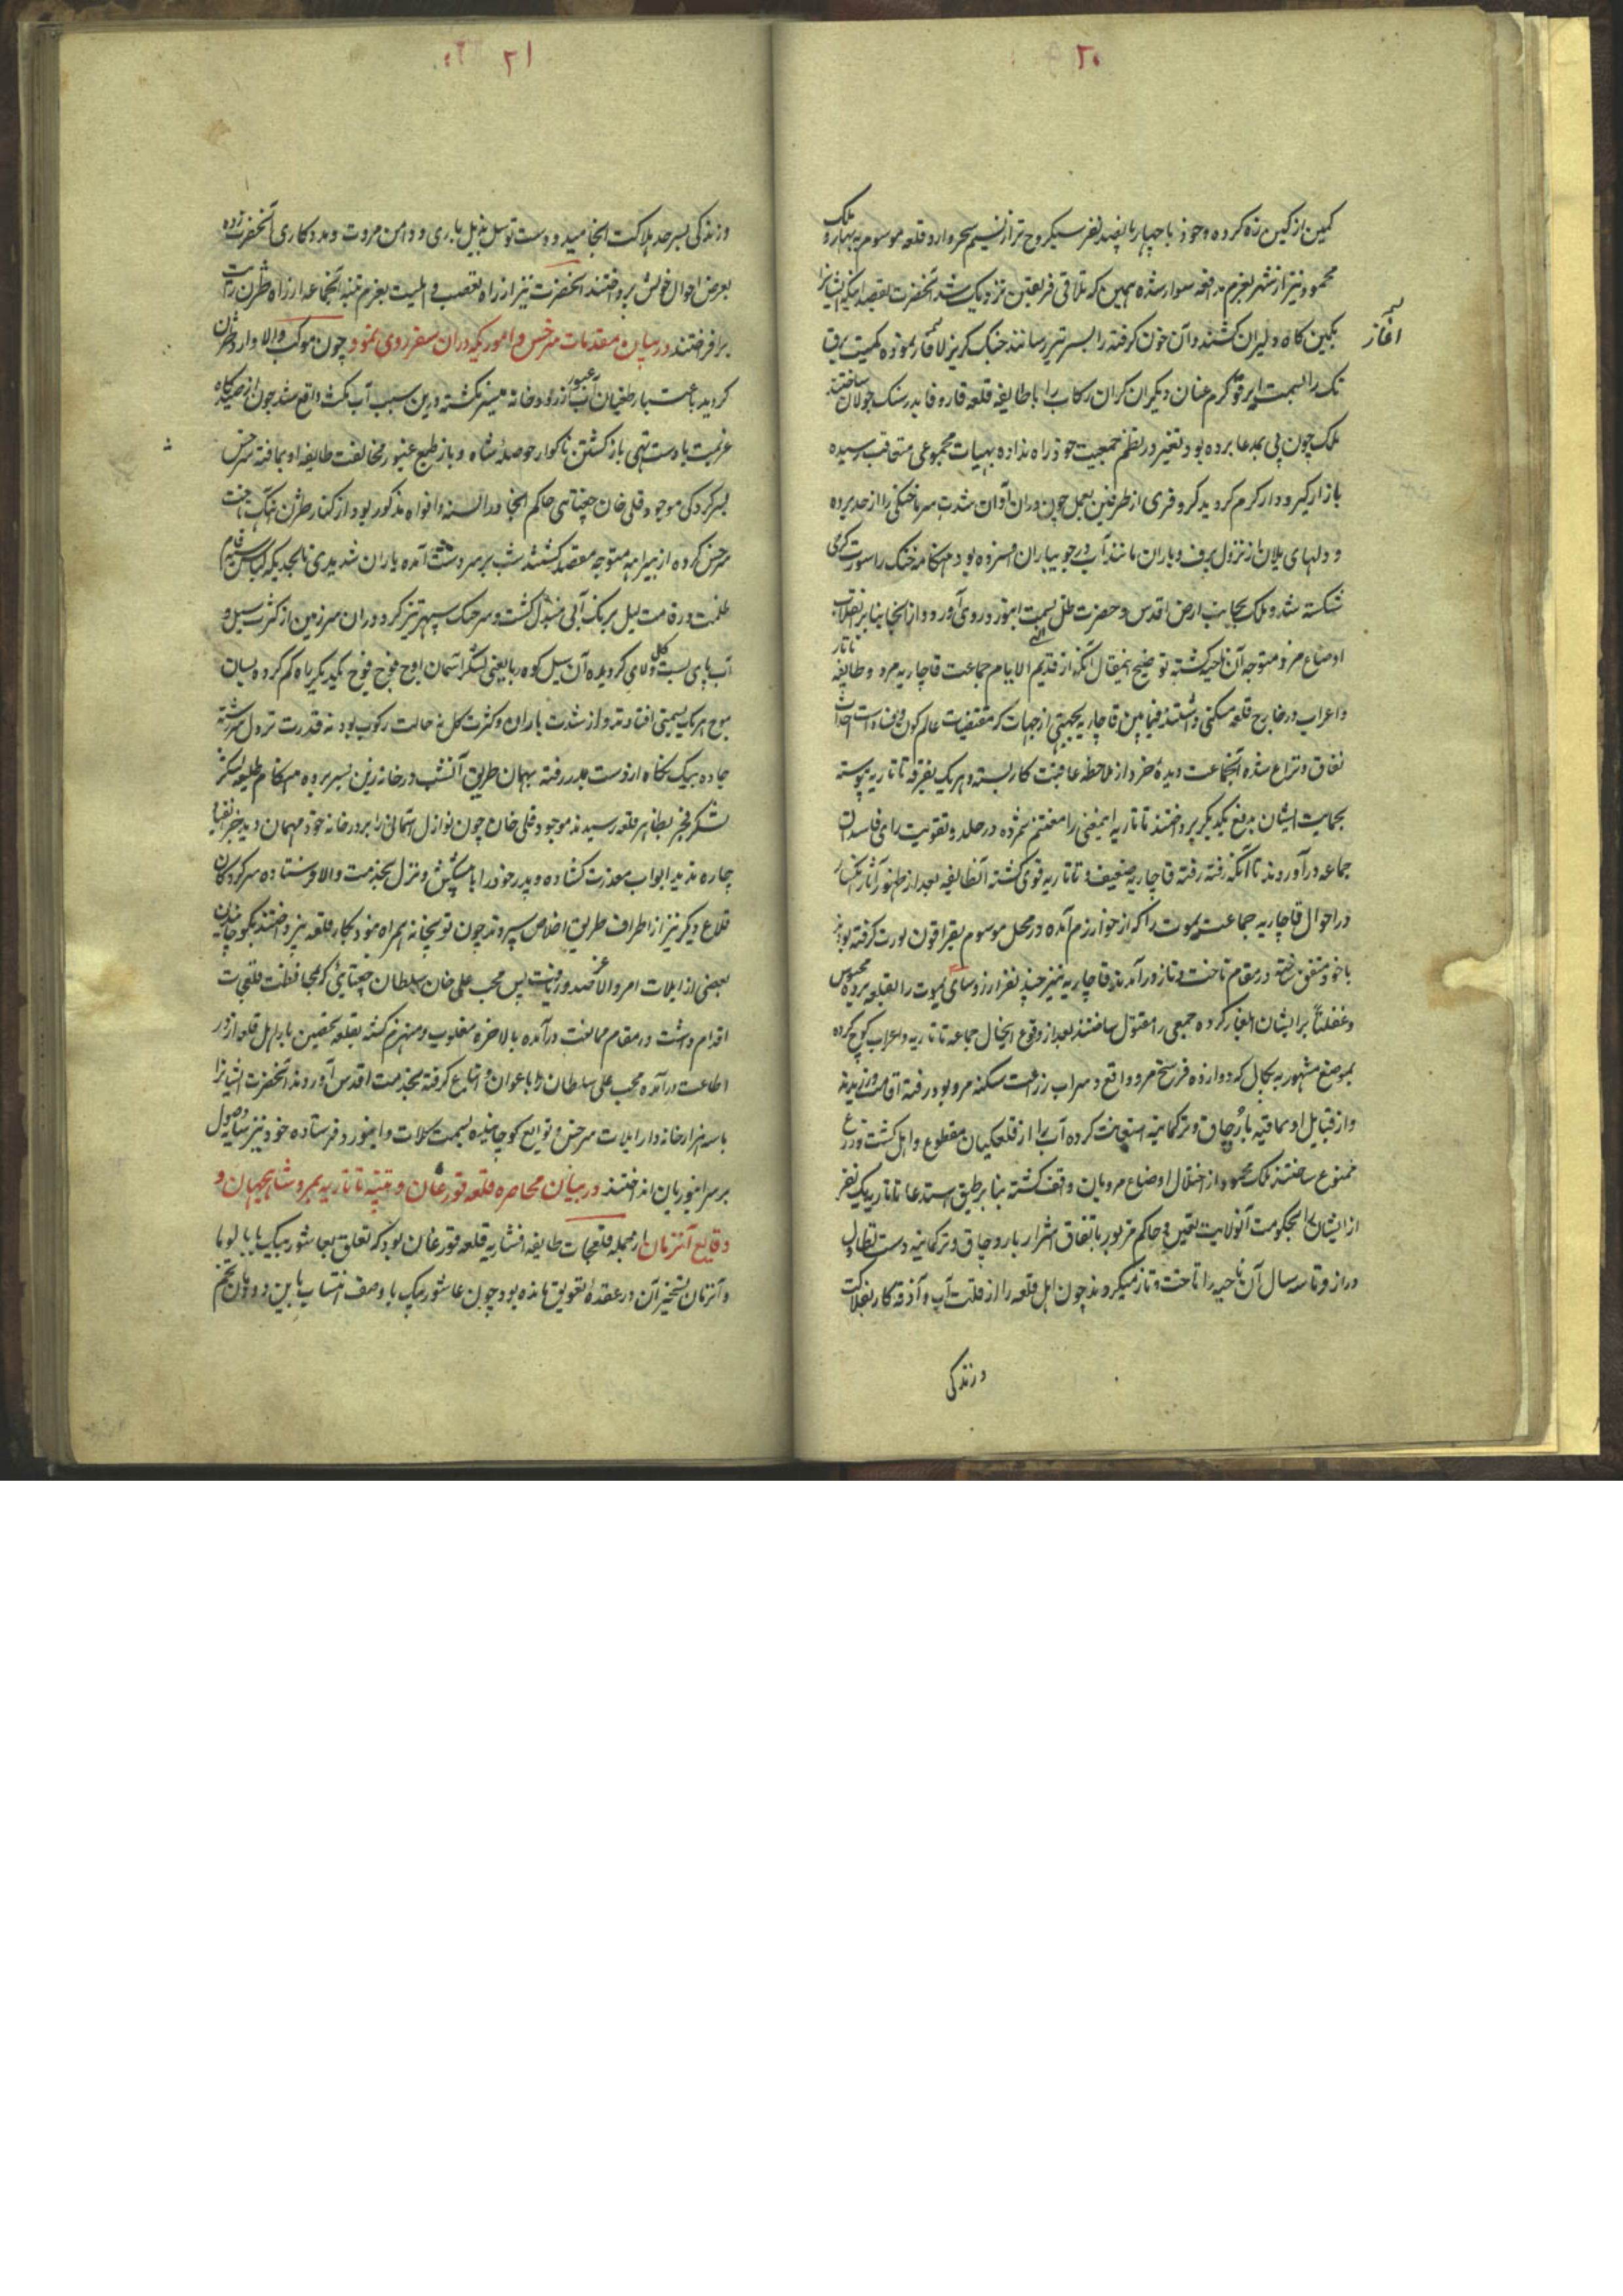 ۲۰
کمین از کین زه کرده و خود با چهار پانصد نفر سبکروح تر از نسیم سحر وارد قلعه موسوم به بهار و ملک
محمود نیز از شهر بعزم مدافعه سوار شده همین که تلاقی فریقین نزدیک شد آنحضرت بقصد اینکه ایشانرا
بکمین کاه دلیران کشند و آن خون کرفته را بسر تیر رسانند جنک کریز آغاز نموده کمیت برق
تک را بسمت ابرقو کرم عنان و دیکران کران رکاب را با طایفه قلعه قارو فا بدرسنک جولان ساختند
ملک چون پی بمدعا برده بود تغییر در نظم جمعیت خود راه نداده بهیات مجموعی متعاقب رسیده
بازار کیر و دار کرم کردید کر و فری از طرفین بعمل چون دران آوان شدت سرما خنکی را از حد برده
و دلهای یلان از نزول برف و باران مانند آب در جویباران فسرده بود هنکامه جنک را سورت کرمی
شکسته شد و ملک بجانب ارض اقدس و حضرت ظل الهی بسمت ابیورد روی آورد و از انجا بنابر انقلاب
اوضاع مرو متوجه آن ناحیه کشته توضیح اینمقال آنکه از قدیم الایام جماعت قاجاریه مرو و طایفه تاتار
و اعراب در خارج قلعه مسکنی داشتند فیمابین قاجاریه بجهتی از جهات که مقتضیات عالم کون و فساد است احداث
نفاق و نزاع شده آنجماعت دیدهٔ خرد از ملاحظه عاقبت کار بسته و هریک بفرقه تاتاریه پیوسته
بحمایت ایشان بدفع یکدیکر پرداختند تاتاریه اینمعنی را مغتنم شمرده در جلد و تقویت رای فاسد آن
جماعه درآوردند تا آنکه رفته رفته قاجاریه ضعیف و تاتاریه قوی کشته آنطایفه بعد از ظهور آثار انکسار
در احوال قاجاریه جماعت یموت را که از خوارزم آمده در محل موسوم بقراقون یورت کرفته بودند
با خود متفق ساخته در مقام تاخت و تاز درآمدند قاجاریه نیز چند نفر از رؤسای یموت را بقلعه برده محبوس
و غفلتاً بر ایشان ایلغار کرده جمعی را مقتول ساختند بعد از وقوع اینحال جماعه تاتاریه و اعراب کوچ کرده
بموضع مشهور به بجال که دوازده فرسخ مرو واقع و سراب زراعت سکنه مرو بود رفته اقامت ورزیدند
و از قبایل اویماقیه یاروجاق و ترکمانیه استعانت کرده آب را از قلعکیان مقطوع و اهل کشت و زرع
ممنوع ساختند ملک محمود از اختلال اوضاع مرویان واقف کشته بنا بر طبق استدعا تاتاریه یک نفر
از ایشان را بحکومت آنولایت تعیین و حاکم مزبور باتفاق اشرار یاروجاق و ترکمانیه دست تطاول
دراز و تا سه سال آن ناحیه را تاخت و تاز میکردند چون اهل قلعه را از قلت آب و آذوقه کار بفلاکت
آغاز
و زندکی
۲۱
و زندکی بسر حد هلاکت انجامید و دست توسل بذیل یاری و دامن مروت و مددکاری آنحضرت زده
بعرض احوال خویش پرداختند آنحضرت نیز از راه تعصب و ایلیت بعزم تنبه آنجماعه از راه طژن رایت
برافراختند در بیان مقدمات سرخس و اموریکه دران سفر روی نمود چون موکب والا وارد طژن
کردید باعتبار طغیان آب عبور ازرودخانه میسر نکشته و درین سبب آب مکث واقع شد چون از صیدکاه
عزیمت با دست تهی باز کشتن ناکوار حوصله شاه و باز طبع غیور مخالفت طایفه اویماقیه سرخس
بسرکردکی موجود قلی خان چغتائی حاکم انجا در السنه و افواه مذکور بود از کنار طژن آهنک جانب
سرخس کرده از بیراهه متوجه مقصد کشتند شب بر سر دست آمده باران شدیدی تا بحدیکه لباس
ظلمت درة مت لیل بریک آبی مبدل کشت و سرچنک سپهر تیز کرد و دران سرزمین از کثرت سیل و
آب پای بست کل و لای کردیده آن سیل کوه ربا یعنی لشکر آسمان اوج فوج فوج یکدیکر راه کم کرده بسان
موج هر یک بسمتی افتادند و از شدت باران و کثرت کل نه حالت رکوب بود نه قدرت نزول سررشته
جاده بیک نکاه از دست بدر رفته بهمان طریق آنشب در خانه زین بسر برده هنکام طلیعه لشکر
لشکر فجر بظاهر قلعه رسیدند موجود قلی خان چون نوازل آسمانی را بر در خانه خود مهمان دید جز انقیاد
چاره ندید ابواب معذرت کشاده و پدر خود را با پیشکش و نزل بخدمت والا فرستاده سرکردکان
قلاع دیکر نیز از اطراف طریق اخلاص سپردند چون توپخانه همراه نبود بکار قلعه نپرداختند بکوچانیدن
بعضی از ایلات امر والا عز صدور یافت پس محب علی خان سلطان چغتایی که بمحافظت قلعجات
اقدام داشت در مقام ممانعت درآمده بالاخره مغلوب و منهزم کشته بقلعه متحصن بار اهل قلعه از در
اطاعت درآمده محب علی سلطان را با اعوان و اتباع کرفته بخدمت اقدس آوردند آنحضرت ایشانرا
با سه هزار خانه وار ایلات سرخس و توابع کوچانیده بسمت کلات و ابیورد فرستاده خود نیز سایه وصول
بر سر ابیوردیان انداختند در بیان محاصره قلعه قورغان و تنبیه تاتاریه بمرو شاهیجهان و
وقایع آنزمان از جمله قلعجات طایفه افشاریه قلعه قورغان بود که تعلق بعاشور بیک بابالو با
و آنزمان تسخیر آن در عقدهٔ تعویق مانده بود چون عاشور بیک با وصف انتساب باین دودمان تخم